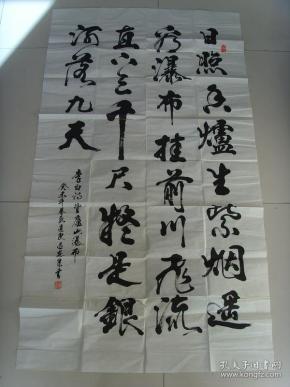 日照香爐生紫烟遥
看瀑布挂前川飛流
直下三千尺疑是銀
河落九天
李白詩望廬山瀑布
癸未年春
孔夫子旧书网